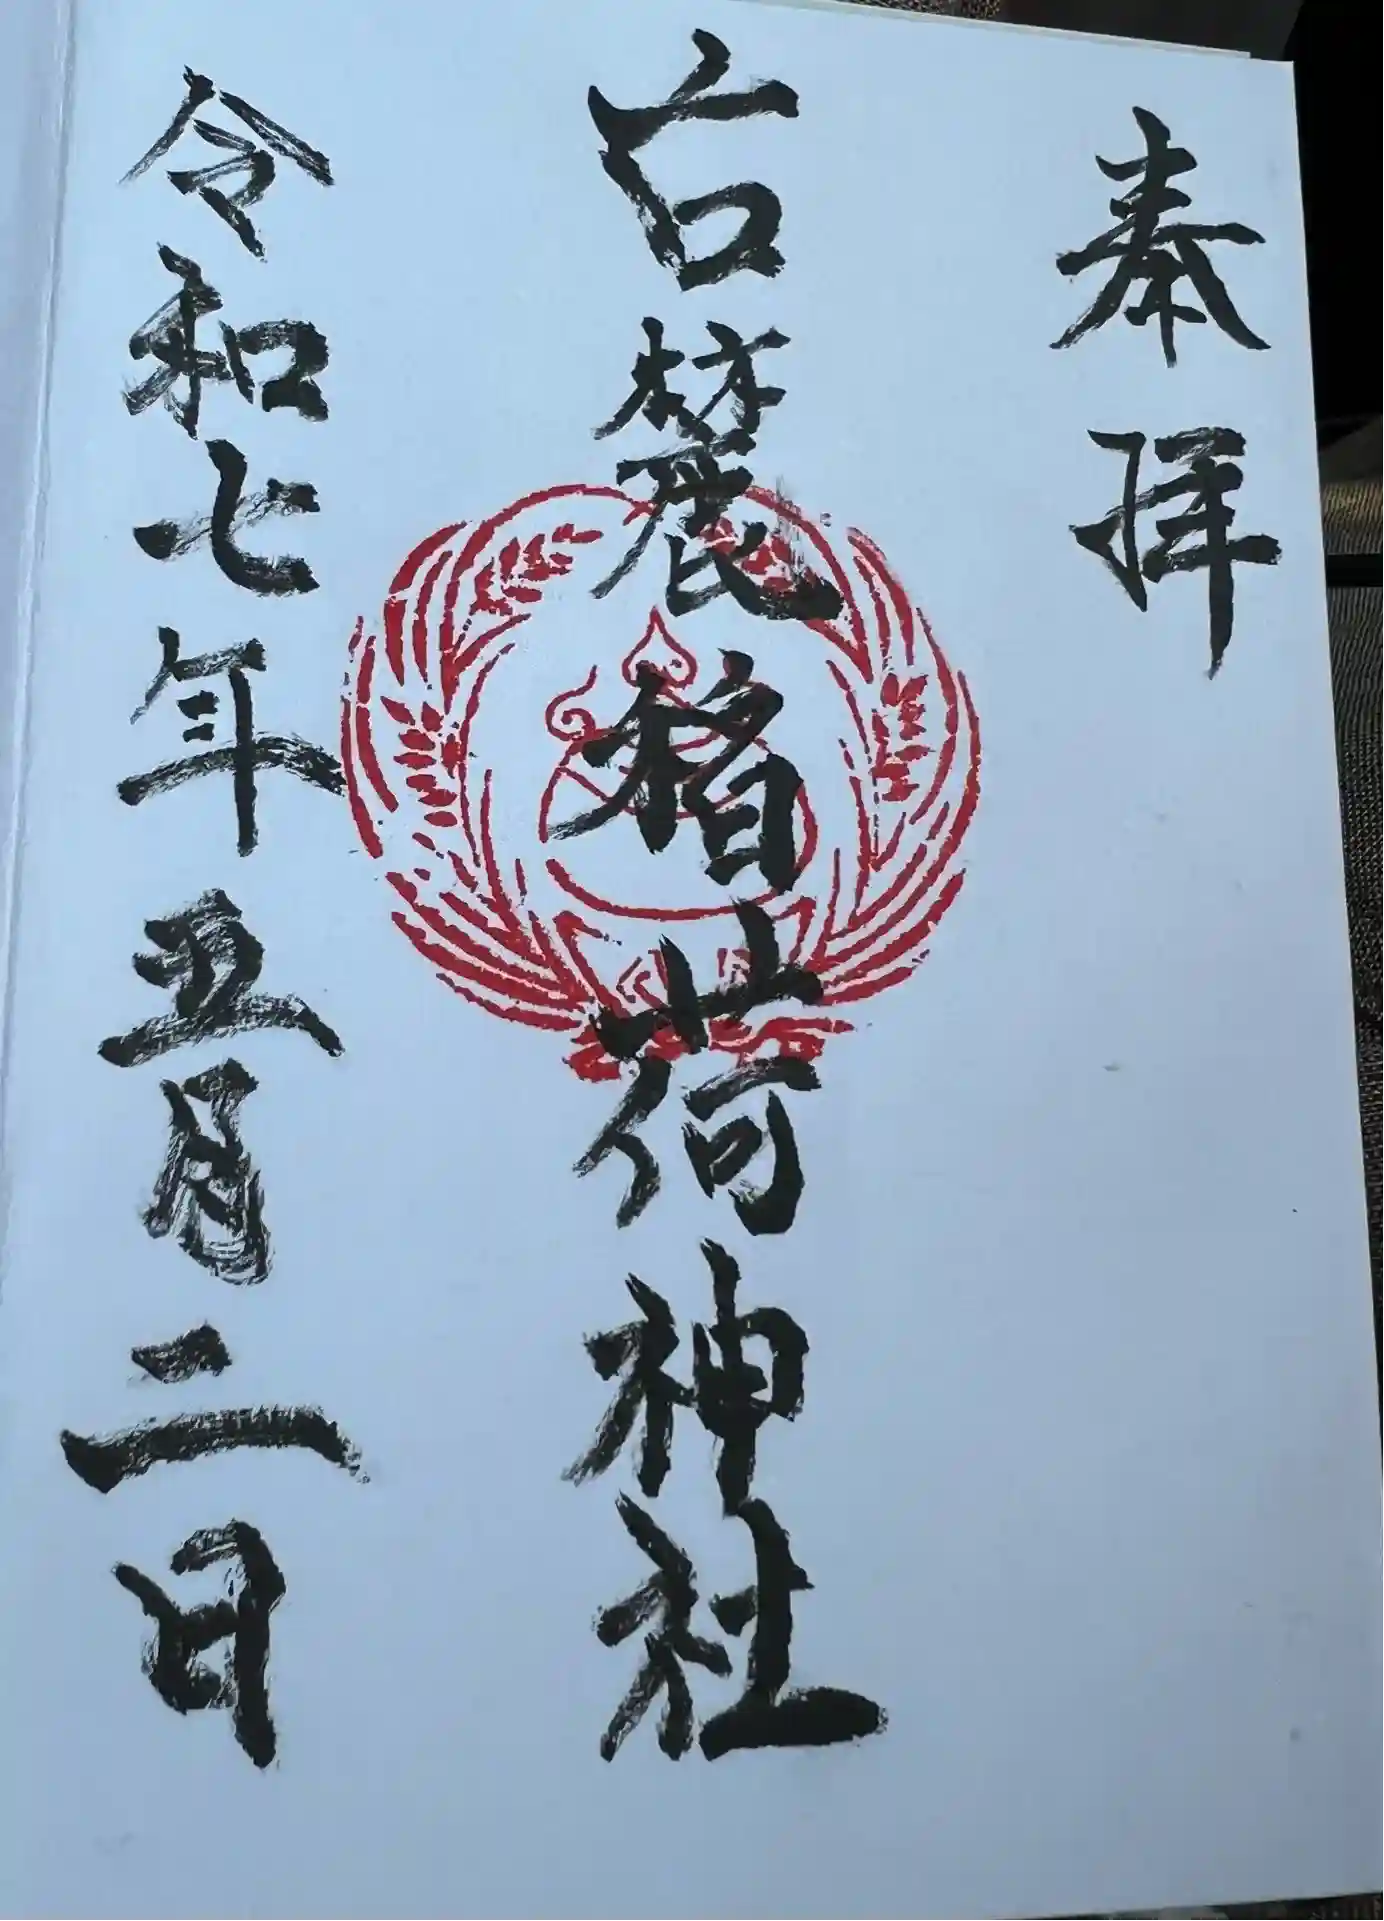 奉拝
古麓稲荷神社
令和七年五月二日